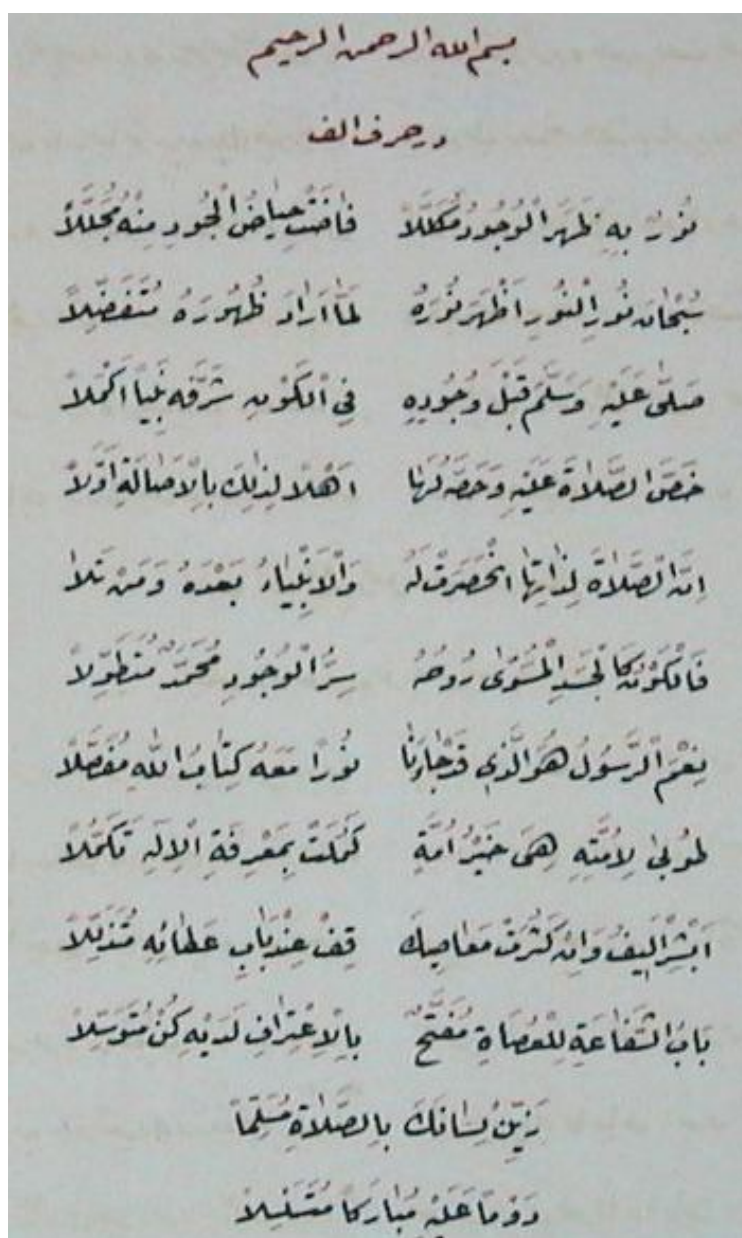 بسم الله الرحمن الرحيم
در حرف الف
نُورٌ بِهِ ظَهَرَ الْوُجُودُ مُكَلَّلاً فَاضَتْ حِيَاضُ الْجُودِ مِنْهُ مُجَلَّلاً
سُبْحَانَ نُورِ النُّورِ اَظْهَرَ نُورَهُ لَمَّا اَرَادَ ظُهُورَهُ مُتَفَضِّلاً
صَلَّى عَلَيْهِ وَسَلَّمَ قَبْلَ وُجُودِهِ فِي الْكَوْنِ شَرَّفَهُ نَبِيّاً اَكْمَلاً
خَصَّ الصَّلَاةَ عَلَيْهِ وَخَصَّهُ لَهَا اَهْلاً لِذٰلِكَ بِالْاَصَالَةِ اَوَّلاً
اِنَّ الصَّلَاةَ لِذَاتِهَا انْحَصَرَتْ لَهُ وَالْاَنْبِيَاءُ بَعْدَهُ وَمَنْ تَلَا
فَالْكَوْنُ كَالْجَسَدِ الْمُسَوَّى رُوحُهُ سِرُّ الْوُجُودِ مُحَمَّدٌ مُتَطَوِّلاً
نِعْمَ الرَّسُولُ هُوَ الَّذِي قَدْ جَاءَنَا نُورًا مَعَهُ كِتَابُ اللهِ مُفَصَّلاً
طُوبَى لِاُمَّتِهِ هِيَ خَيْرُ اُمَّةٍ كَمُلَتْ بِمَعْرِفَةِ الْاِلٰهِ تَكَمُّلاً
اَبْشِرْ اَلِيفُ وَاِنْ كَثُرَتْ مَعَاصِيكَ قِفْ عِنْدَ بَابِ عَطَائِهِ مُتَذَلِّلاً
بَابُ الشَّفَاعَةِ لِلْعُصَاةِ مُفَتَّحٌ بِالْاِعْتِرَافِ لَدَيْهِ كُنْ مُتَوَسِّلاً
زَيِّنْ لِسَانَكَ بِالصَّلَاةِ مُسَلِّمًا
دَوْمًا عَلَيْهِ مُبَارَكًا مُتَسَلْسِلاً